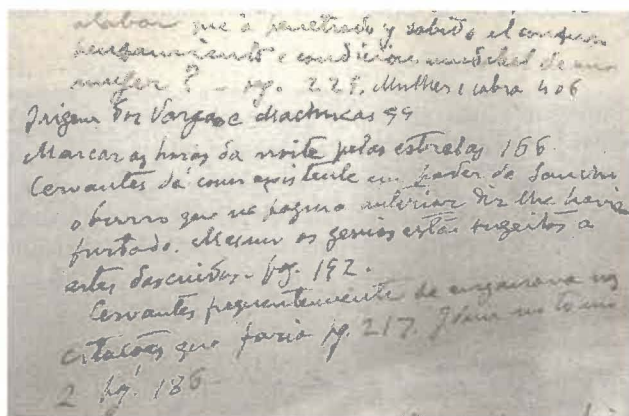 alabar que á penetrado y sabido el confuso
pensamiento e condición mudable de una
mujer? - pg. 225. Mulher e cabra 406
Origem dos Vargas e Machucas 99
Marcar as horas da noite pelas estrelas 166.
Cervantes dá como existente em poder de Sancho
o burro que na pagina anterior diz lhe havia
furtado. Mesmo os genios estão sugeitos a
estes descuidos - pag. 192.
Cervantes frequentemente se enganava nas
citações que fazia pg. 217. Idem no tomo
2 pg. 186